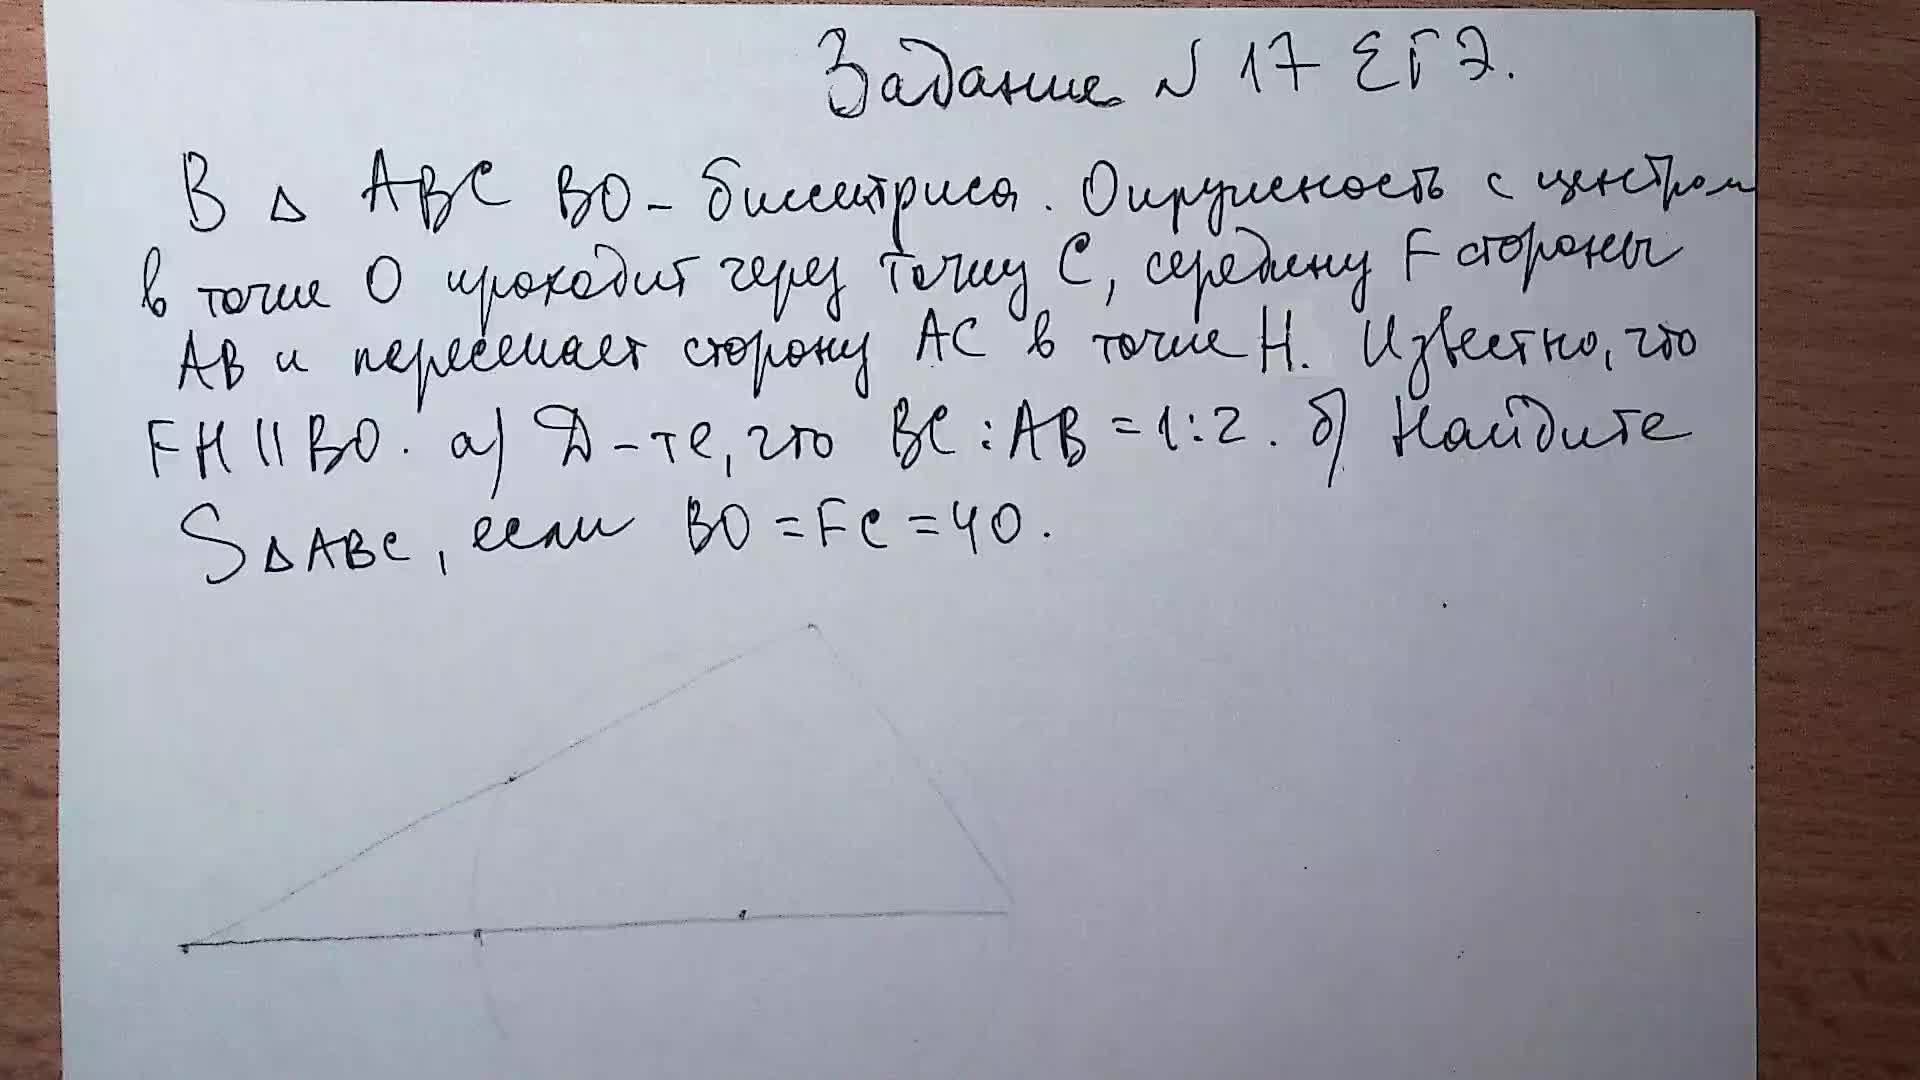 Задание N 17 ЕГЭ.
В △ ABC BO - биссектриса. Окружность с центром
в точке O проходит через точку C, середину F стороны
AB и пересекает сторону AC в точке H. Известно, что
FH || BO. а) Д-те, что BC : AB = 1 : 2. б) Найдите
S△ABC, если BO = FC = 40.